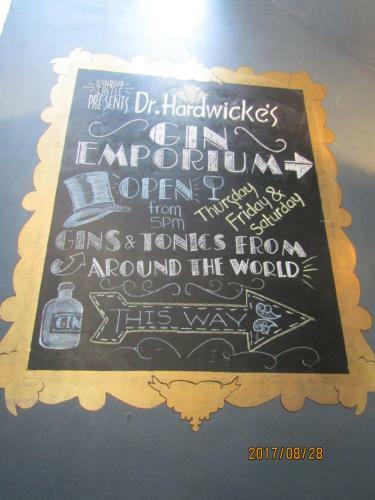 WINDSOR
CASTLE
PRESENTS
Dr. Hardwicke's
GIN
EMPORIUM
OPEN
from
5PM
Thursday
Friday &
Saturday
GINS & TONICS FROM
AROUND THE WORLD
GIN
THIS WAY
2017/08/28